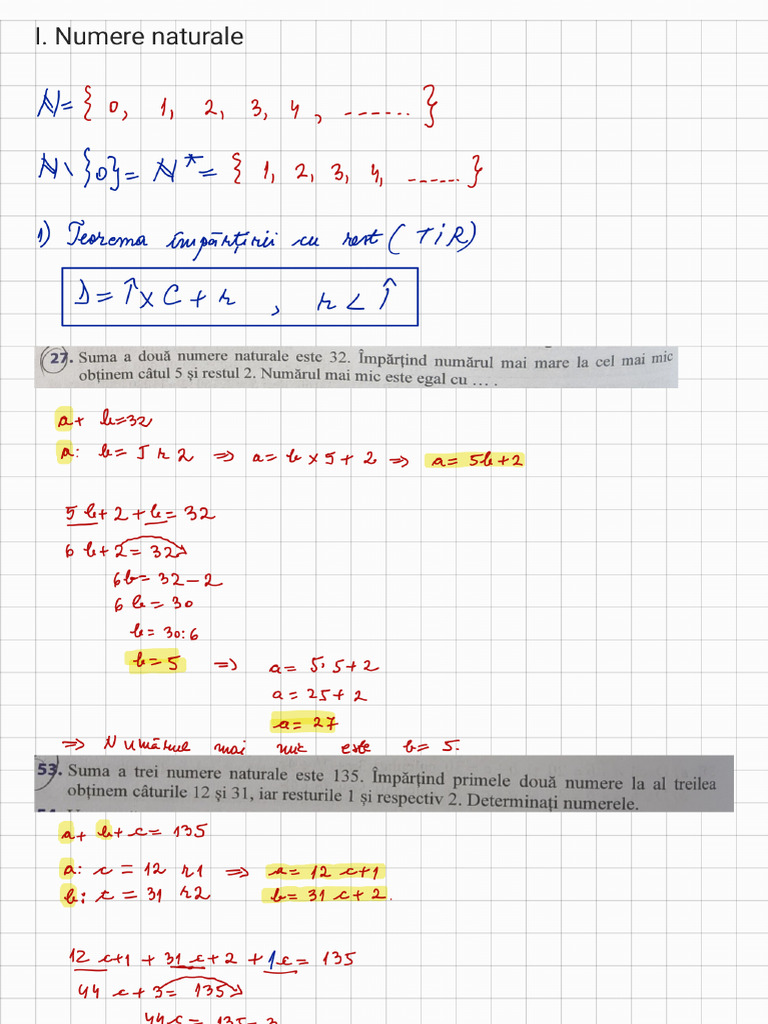 I. Numere naturale
N = { 0, 1, 2, 3, 4, ....... }
N \ {0} = N* = { 1, 2, 3, 4, ...... }
1) Teorema împărțirii cu rest (TîR)
D = Î x C + r , r < Î
27. Suma a două numere naturale este 32. Împărțind numărul mai mare la cel mai mic
obținem câtul 5 și restul 2. Numărul mai mic este egal cu ... .
a + b = 32
a : b = 5 r 2 => a = b x 5 + 2 => a = 5b + 2
5b + 2 + b = 32
6b + 2 = 32
6b = 32 - 2
6b = 30
b = 30 : 6
b = 5 => a = 5 · 5 + 2
a = 25 + 2
a = 27
=> Numărul mai mic este b = 5.
53. Suma a trei numere naturale este 135. Împărțind primele două numere la al treilea
obținem câturile 12 și 31, iar resturile 1 și respectiv 2. Determinați numerele.
a + b + c = 135
a : c = 12 r 1 => a = 12c + 1
b : c = 31 r 2 b = 31c + 2.
12c + 1 + 31c + 2 + 1c = 135
44c + 3 = 135
44c = 135 - 3